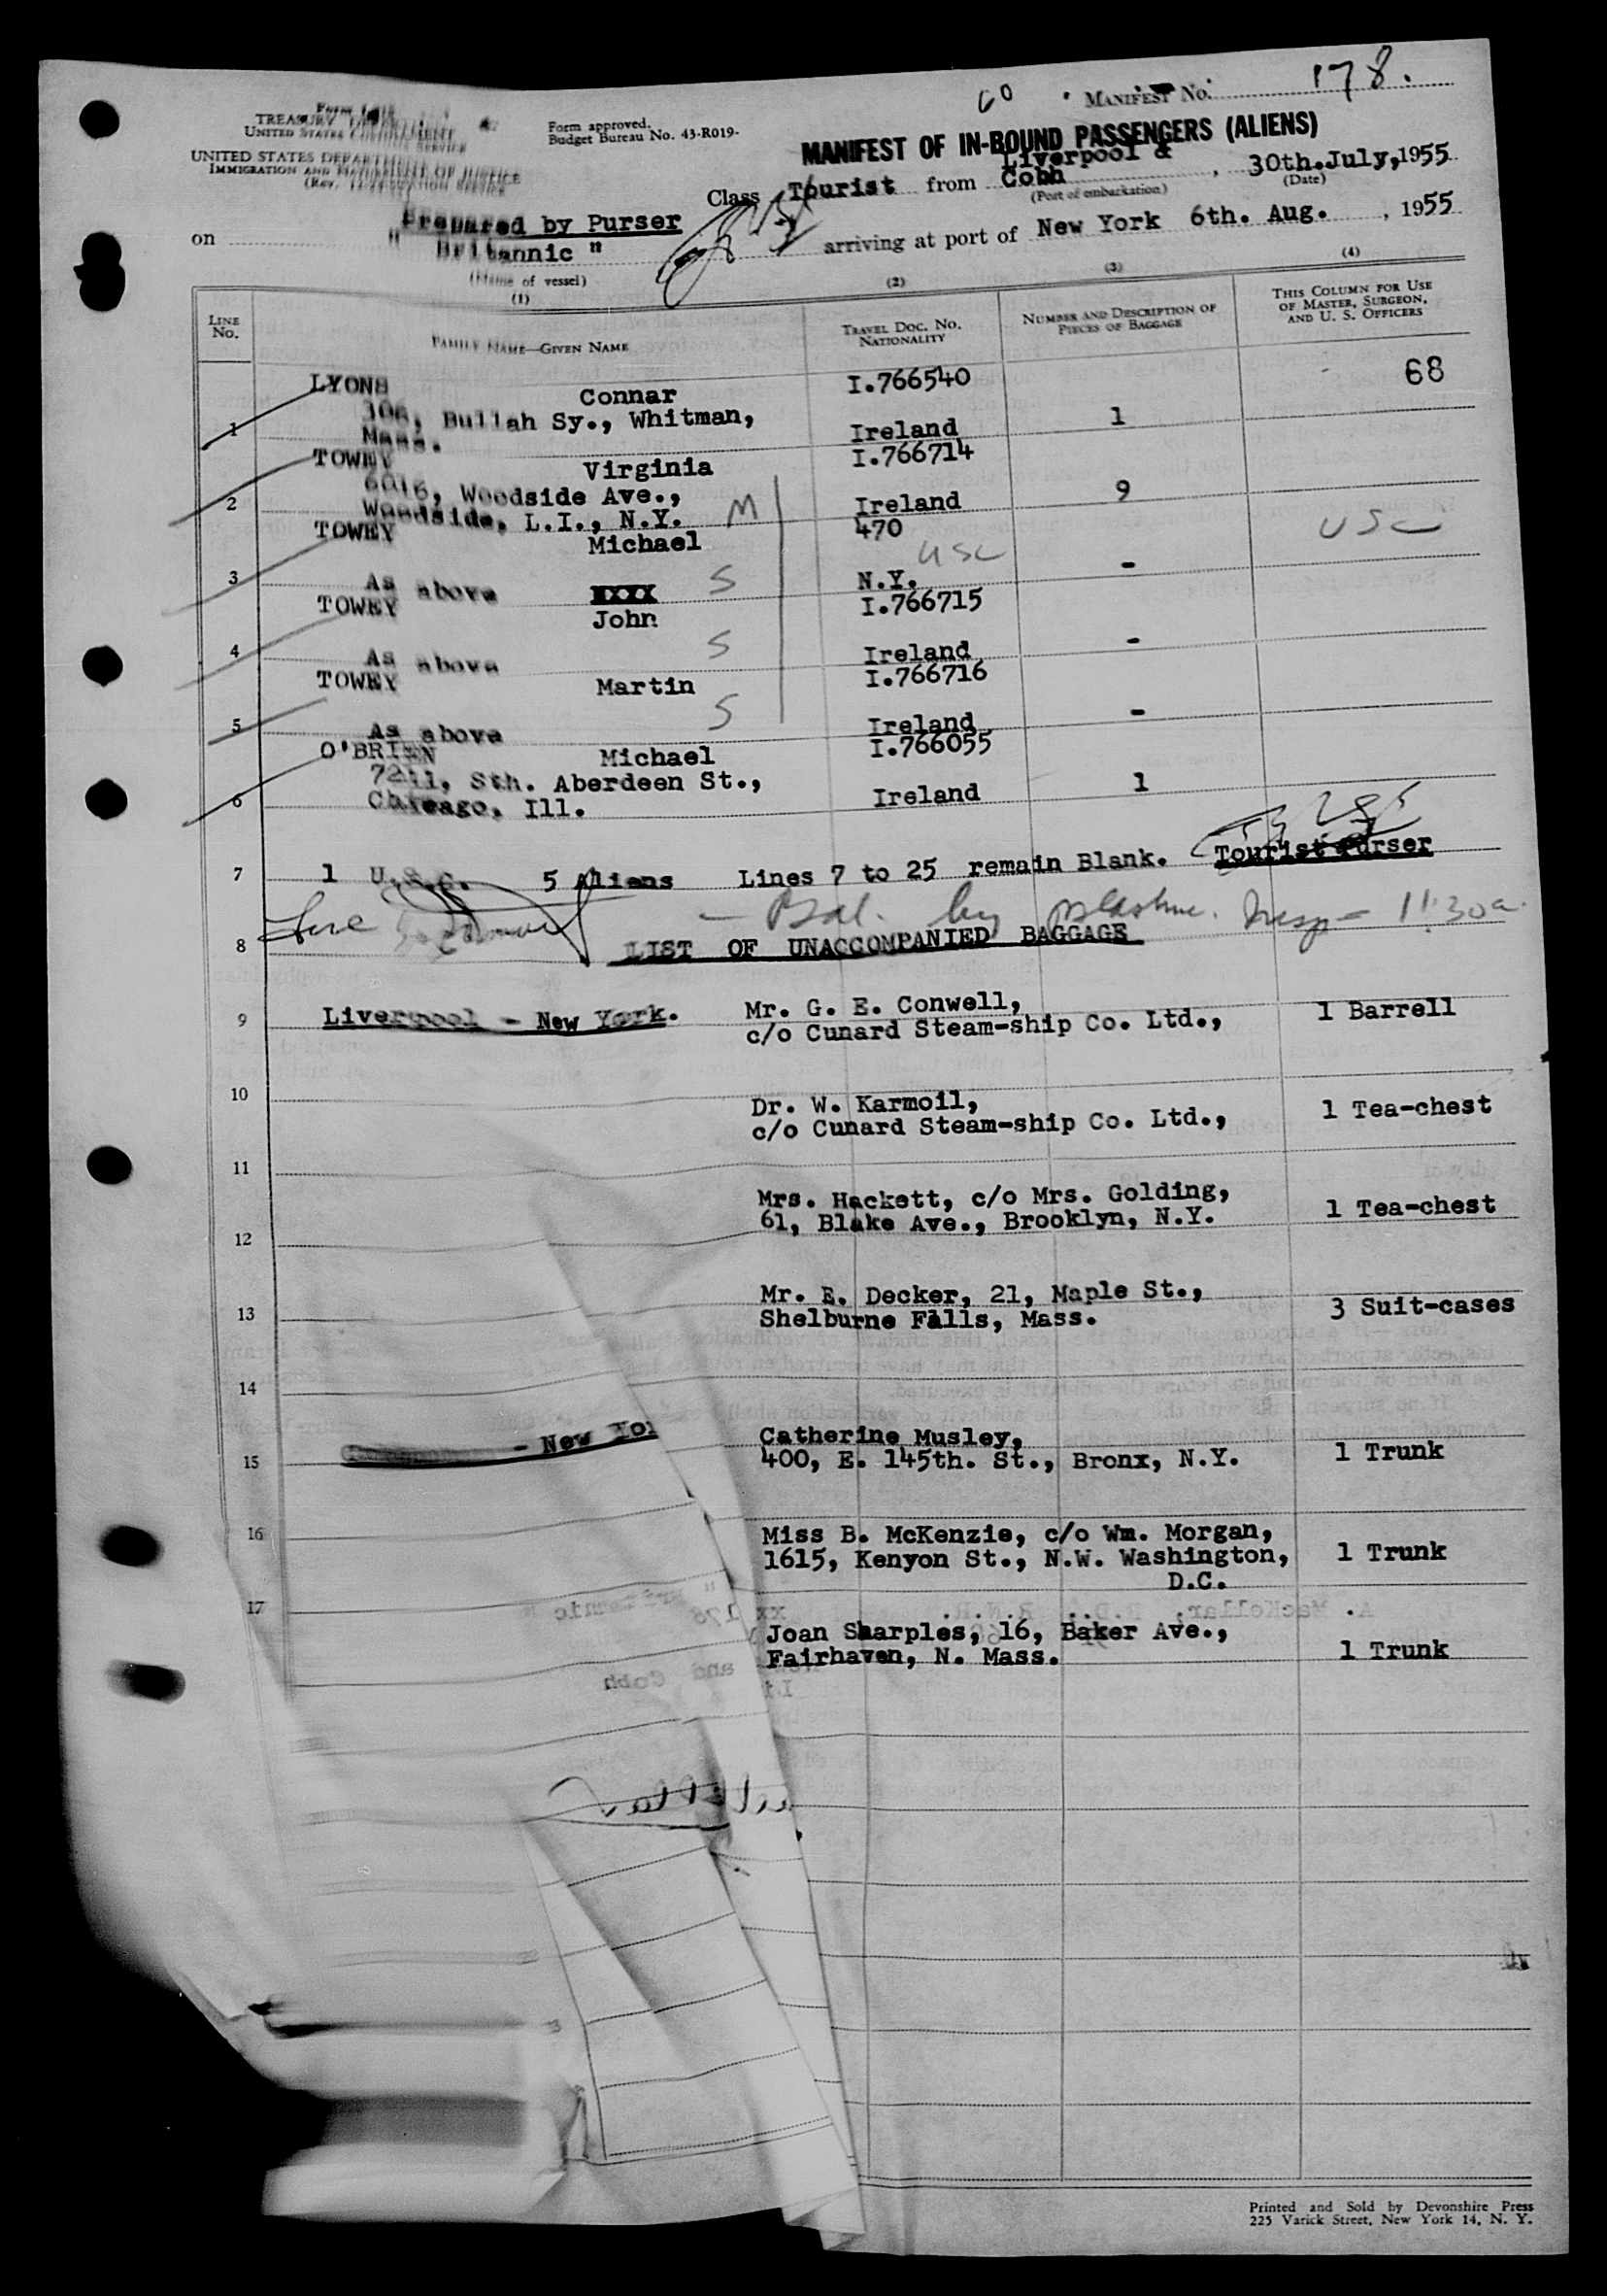 60 MANIFEST No. 178.
Form
TREASURY
UNITED STATES
UNITED STATES DEPARTMENT OF JUSTICE
IMMIGRATION AND NATURALIZATION SERVICE
(Rev.
Form approved.
Budget Bureau No. 43-R019-
MANIFEST OF IN-BOUND PASSENGERS (ALIENS)
Class Tourist from Liverpool & Cobh, 30th.July,1955
(Port of embarkation) (Date)
Prepared by Purser
on " Britannic " arriving at port of New York 6th. Aug., 1955
(Name of vessel)
(1) (2) (3) (4)
LINE No.
FAMILY NAME—GIVEN NAME
TRAVEL DOC. No. NATIONALITY
NUMBER AND DESCRIPTION OF PIECES OF BAGGAGE
THIS COLUMN FOR USE OF MASTER, SURGEON, AND U. S. OFFICERS
LYONS Connar I.766540 68
1 Bullah Sy., Whitman, Mass. Ireland 1
TOWEY Virginia I.766714
2 6016, Woodside Ave., Woodside, L.I., N.Y. M Ireland 9
TOWEY Michael 470 USC USC
3 As above XXXX S N.Y. -
TOWEY John I.766715
4 As above S Ireland -
TOWEY Martin I.766716
5 As above S Ireland -
O'BRIEN Michael I.766055
6 7211, Sth. Aberdeen St., Chicago, Ill. Ireland 1
7 1 U.S.C. 5 Aliens Lines 7 to 25 remain Blank. Tourist Purser
- Bal. by 11:30a
8 LIST OF UNACCOMPANIED BAGGAGE
9 Liverpool - New York. Mr. G. E. Conwell,
c/o Cunard Steam-ship Co. Ltd., 1 Barrell
10 Dr. W. Karmoil,
c/o Cunard Steam-ship Co. Ltd., 1 Tea-chest
11
Mrs. Hackett, c/o Mrs. Golding,
61, Blake Ave., Brooklyn, N.Y. 1 Tea-chest
12
13 Mr. E. Decker, 21, Maple St.,
Shelburne Falls, Mass. 3 Suit-cases
14
- New Yor Catherine Musley,
15 400, E. 145th. St., Bronx, N.Y. 1 Trunk
16 Miss B. McKenzie, c/o Wm. Morgan,
1615, Kenyon St., N.W. Washington, 1 Trunk
D.C.
17
Joan Sharples, 16, Baker Ave.,
Fairhaven, N. Mass. 1 Trunk
Printed and Sold by Devonshire Press
225 Varick Street, New York 14, N. Y.